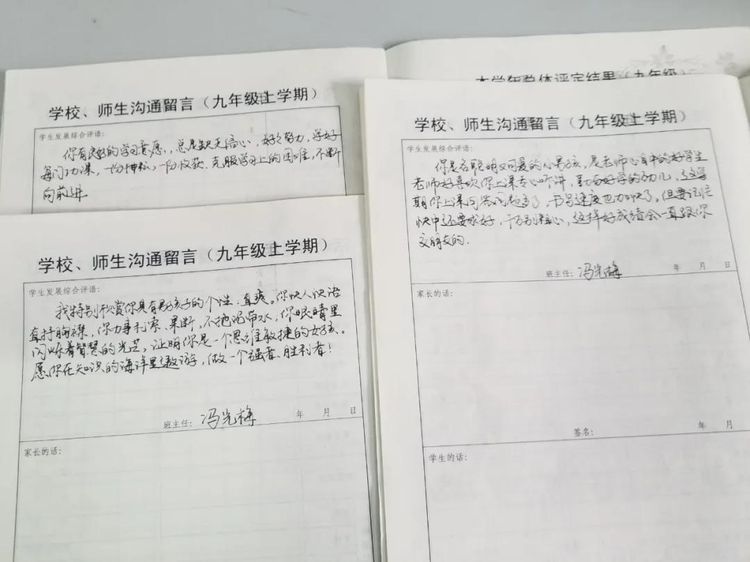 学校、师生沟通留言（九年级上学期）
学生发展综合评语：
你有良好的学习意愿，总是缺乏信心，好好努力，学好
每门功课，一份耕耘，一份收获，克服学习上的困难，不断
向前进。
学校、师生沟通留言（九年级上学期）
学生发展综合评语：
我特别欣赏你具有男孩子的个性，直爽。你快人快语
直抒胸襟，你办事利索、果断，不拖泥带水，你眼睛里
闪烁着智慧的光芒，证明你是一个思维敏捷的女孩。
愿你在知识的海洋里遨游，做一个强者、胜利者！
班主任：冯光梅 年 月 日
家长的话：
本学年总体评定结果（九年级）
学校、师生沟通留言（九年级上学期）
学生发展综合评语：
你是名聪明又可爱的小男孩，是老师心目中的好学生
老师好喜欢你上课专心听讲，勤奋好学的劲儿，这学
期你上课回答问题，书写速度也加快了。但要记住
快中还要求好，千万别粗心，这样好成绩会一直跟你
交朋友的。
班主任：冯光梅 年 月 日
家长的话：
签名： 年 月 日
学生的话：